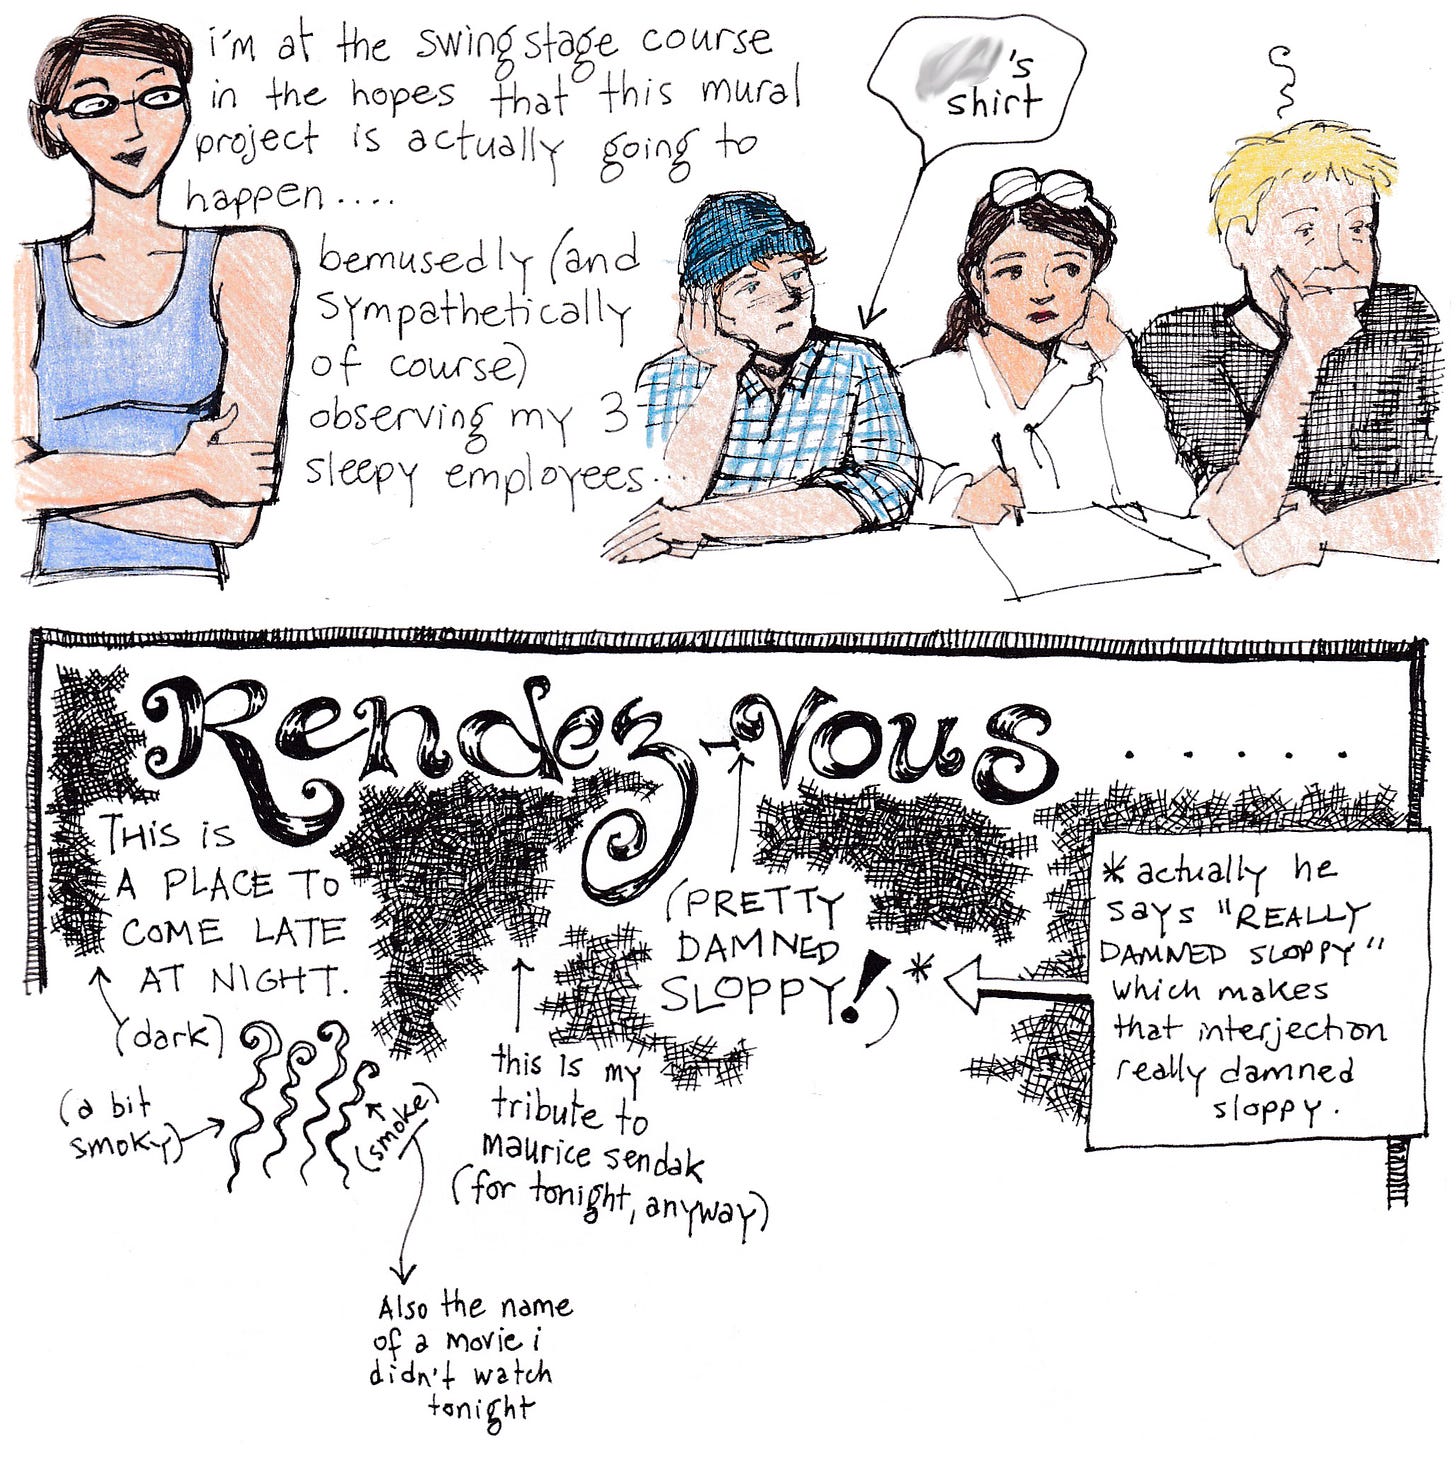 i'm at the swingstage course
in the hopes that this mural
project is actually going to
happen....
bemusedly (and
sympathetically
of course)
observing my 3
sleepy employees...
's
shirt
Rendez-Vous ......
THIS is
A PLACE TO
COME LATE
AT NIGHT.
(dark)
(a bit
smoky)
(smoke)
Also the name
of a movie i
didn't watch
tonight
this is my
tribute to
maurice sendak
(for tonight, anyway)
(PRETTY
DAMNED
SLOPPY!)*
*actually he
says "REALLY
DAMNED SLOPPY"
which makes
that interjection
really damned
sloppy.